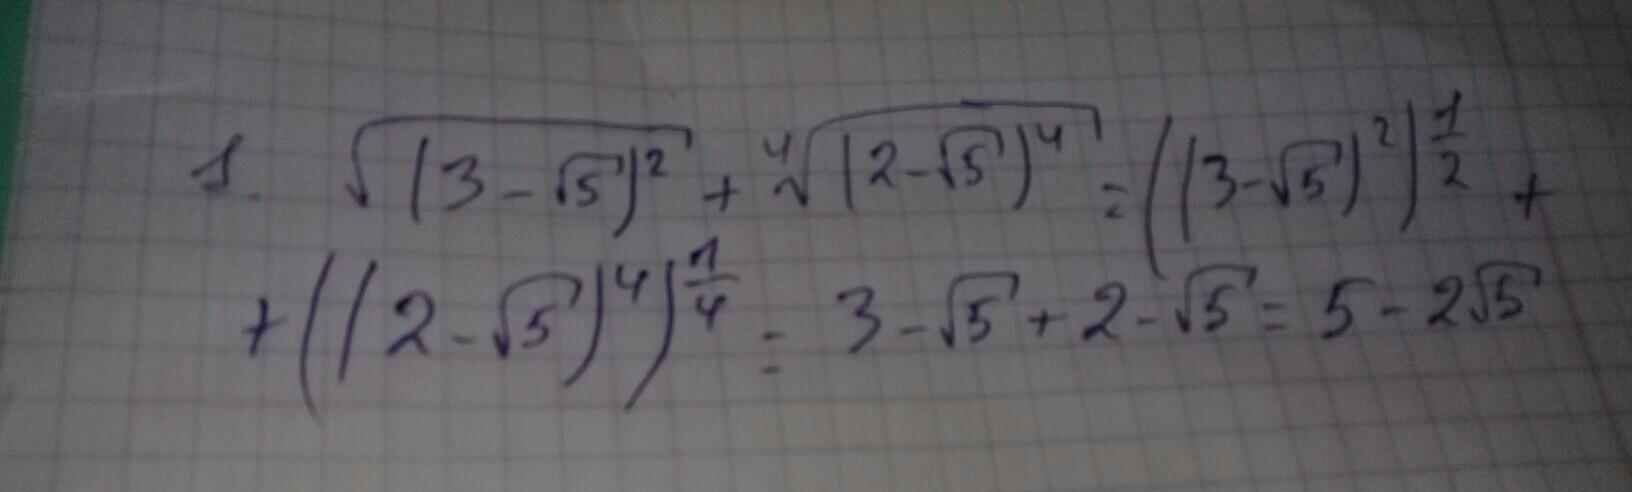 1. √(3-√5)² + ⁴√(2-√5)⁴ = ((3-√5)²)^(1/2) +
+ ((2-√5)⁴)^(1/4) = 3-√5 + 2-√5 = 5-2√5